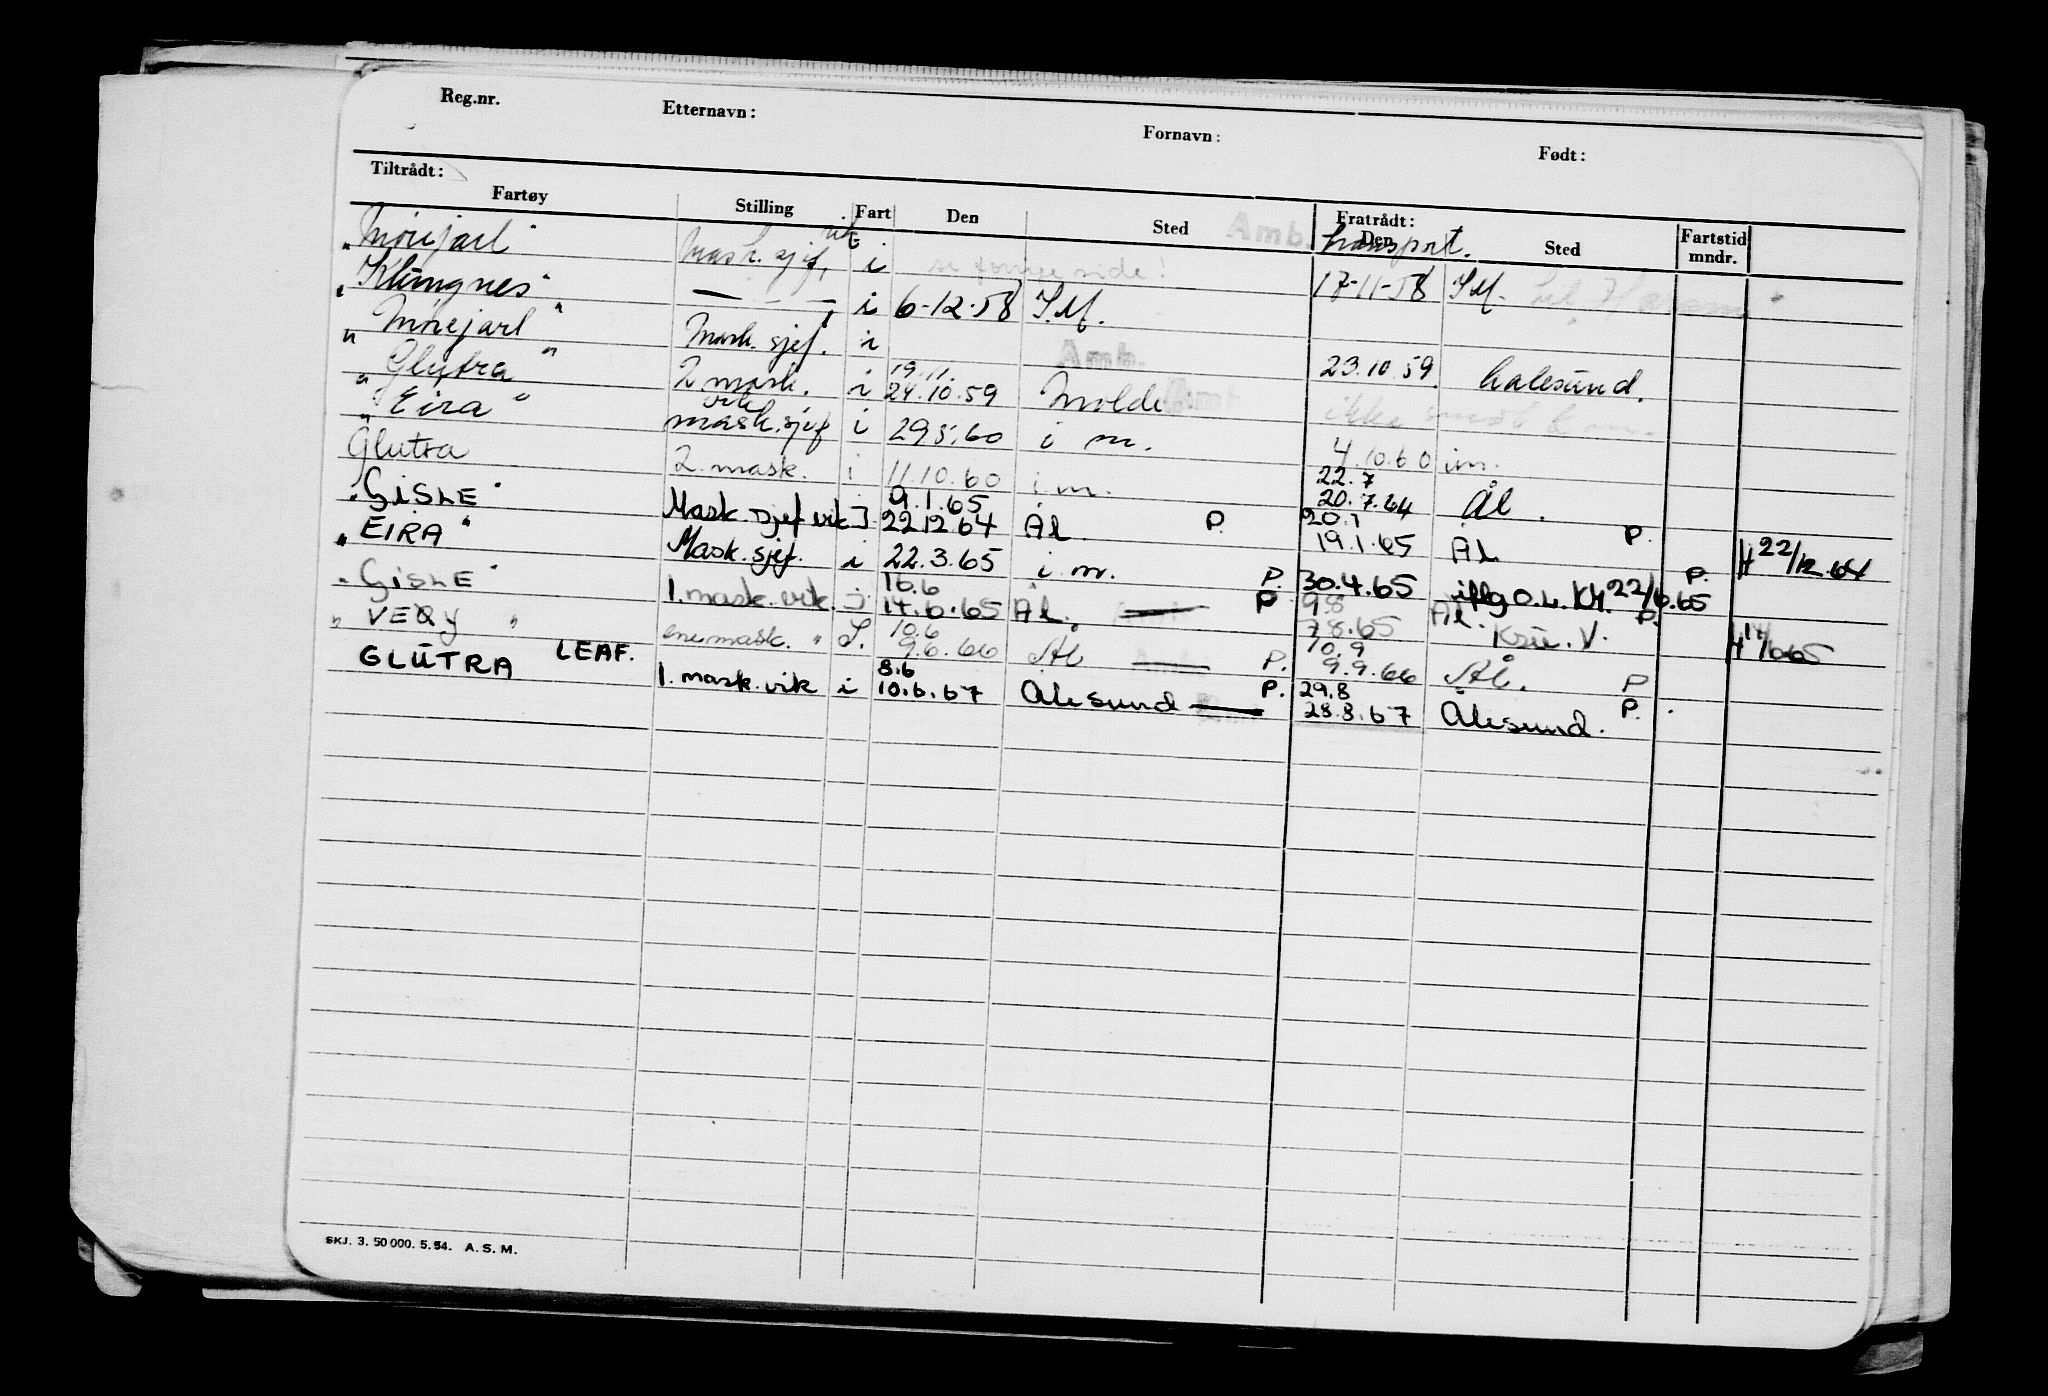 Reg.nr. Etternavn: Fornavn: Født:
Tiltrådt: Fratrådt:
Fartøy Stilling Fart Den Sted Den Sted Fartstid mndr.
"Mörejarl" Mask. sjef, vik i se forrige side! Amb. transport. 17-11-58 S.M.
"Klüngnes" — — — i 6-12-58 S.M.
"Mörejarl" Mask. sjef. i Amb. 23.10.59 Aalesünd.
"Glütra" 2 mask. i 19.11. 24.10.59 Molde Amt ikke
"Eira" mask. sjef vik i 29.5.60 i m. 4.10.60 i m.
Glütra 2. mask. i 11.10.60 i m. 22.7 20.7.64 Ål.
"GISLE" Mask. sjef vik I 9.1.65 22.12.64 Ål. P. 20.1 19.1.65 Ål P. 22/12.64
"EIRA" Mask. sjef. i 22.3.65 i m. P. 30.4.65 iflg O.L. Kh. 22/6.65 P.
"GISLE" 1. mask. vik. I 16.6 14.6.65 Ål. P 9.8 7.8.65 Ål. P. 14/6.65
"VEQY" LEAF. enemask. " S. 10.6 9.6.66 Ål P. 10.9 9.9.66 Ål. P
GLÜTRA 1. mask. vik i 8.6 10.6.67 Ålesund P. 29.8 28.8.67 Ålesund. P.
SKJ. 3. 50 000. 5. 54. A. S. M.